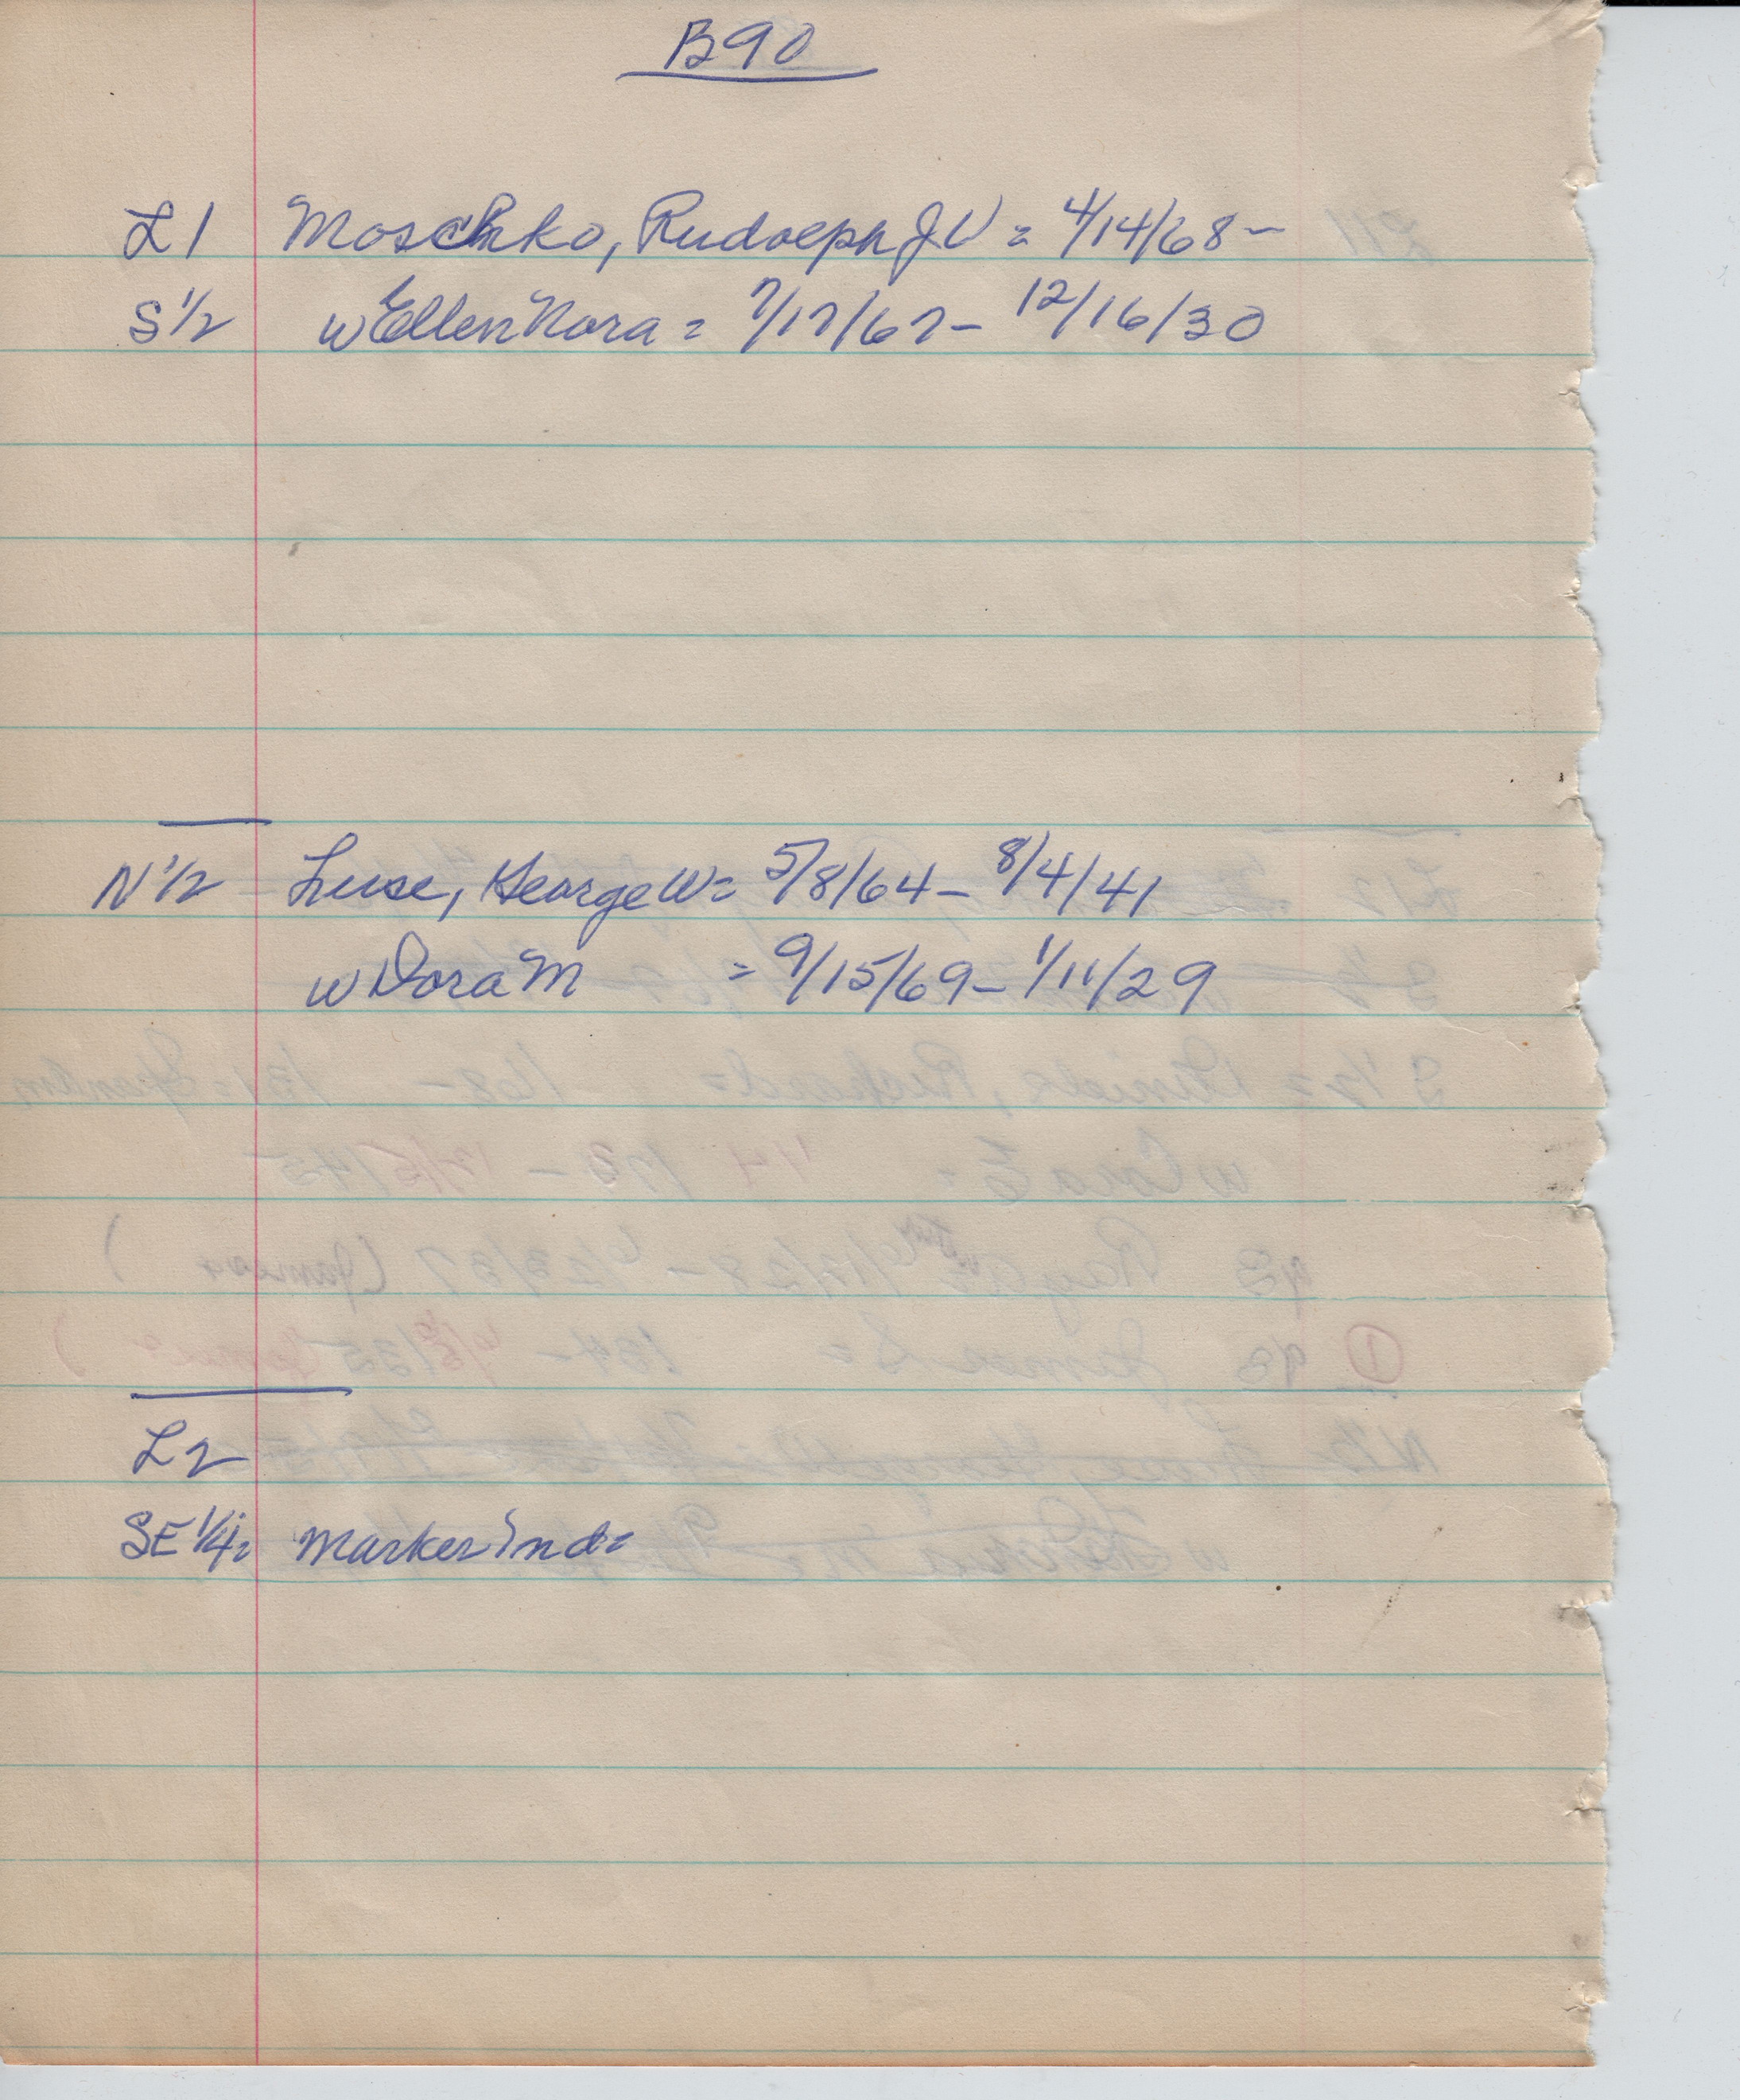 B90
L1 Moschko, Rudolph J V = 4/14/68 –
S 1/2 w Ellen Nora = 7/17/67 – 12/16/30
N 1/2 Luse, George W = 5/8/64 – 8/4/41
w Dora M = 9/15/69 – 1/11/29
L2
SE 1/4 = Marker Ind =